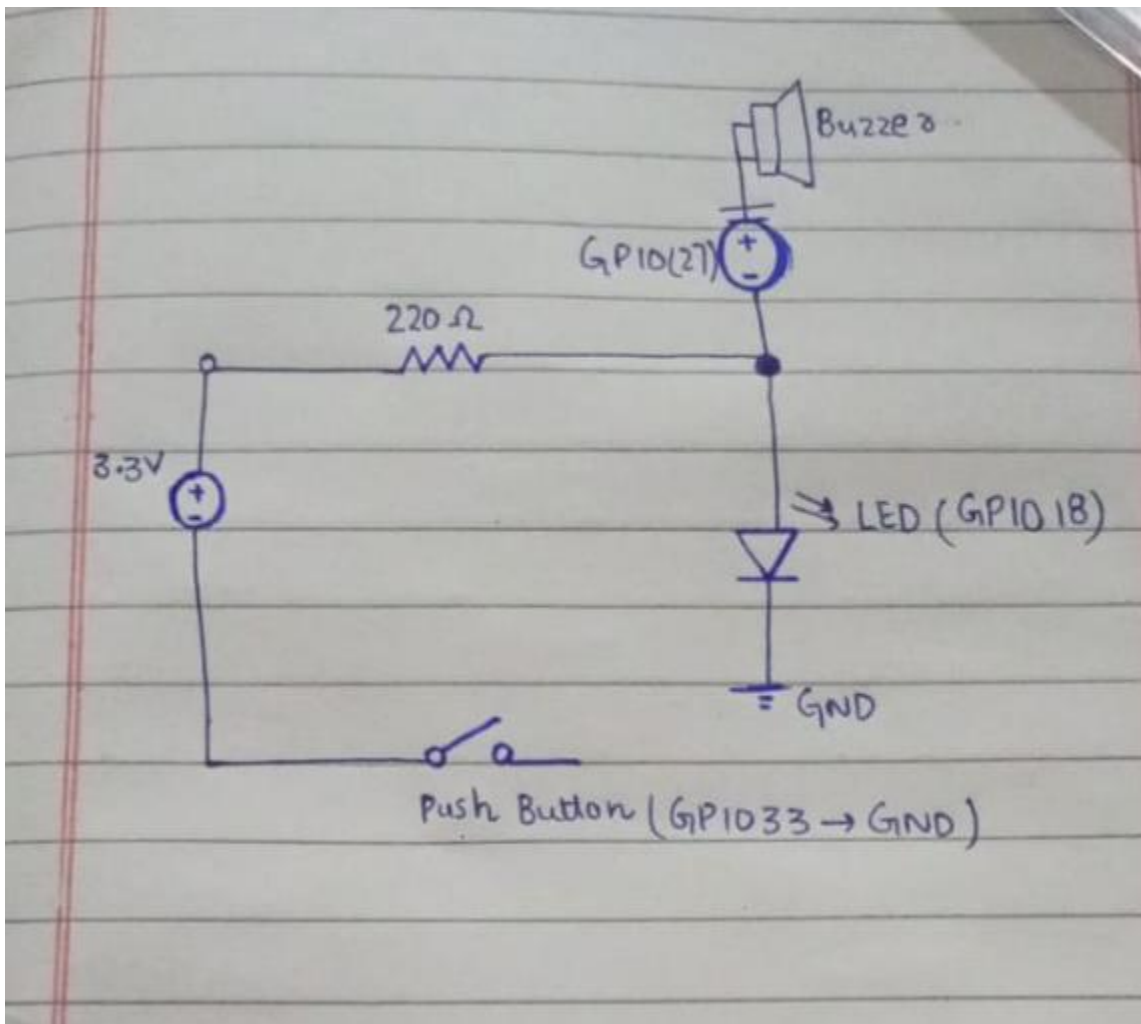 Buzzer
+
GPIO(27)
-
220 Ω
3.3V
+
-
LED (GPIO 18)
GND
Push Button (GPIO33 → GND)